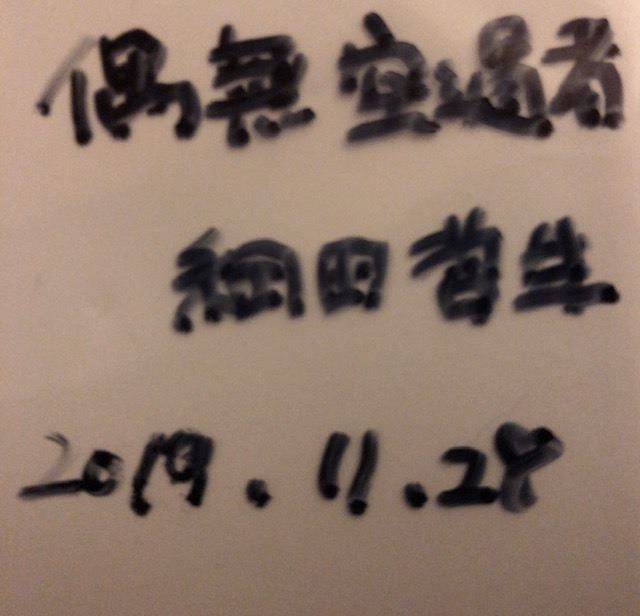 偶無空過者
細田
2019.11.28